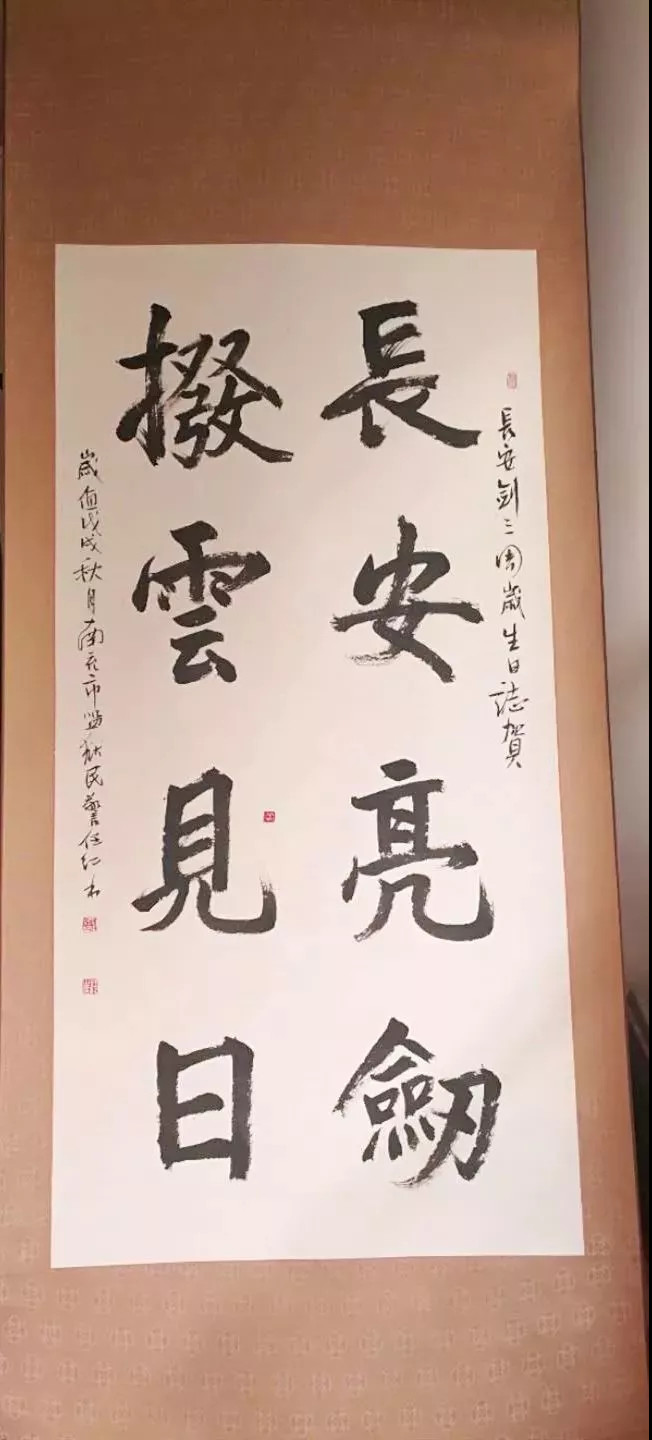 長安劍三周歲生日誌賀
長安亮劒
撥雲見日
歲值戊戌秋月南充市監獄民警任仁书